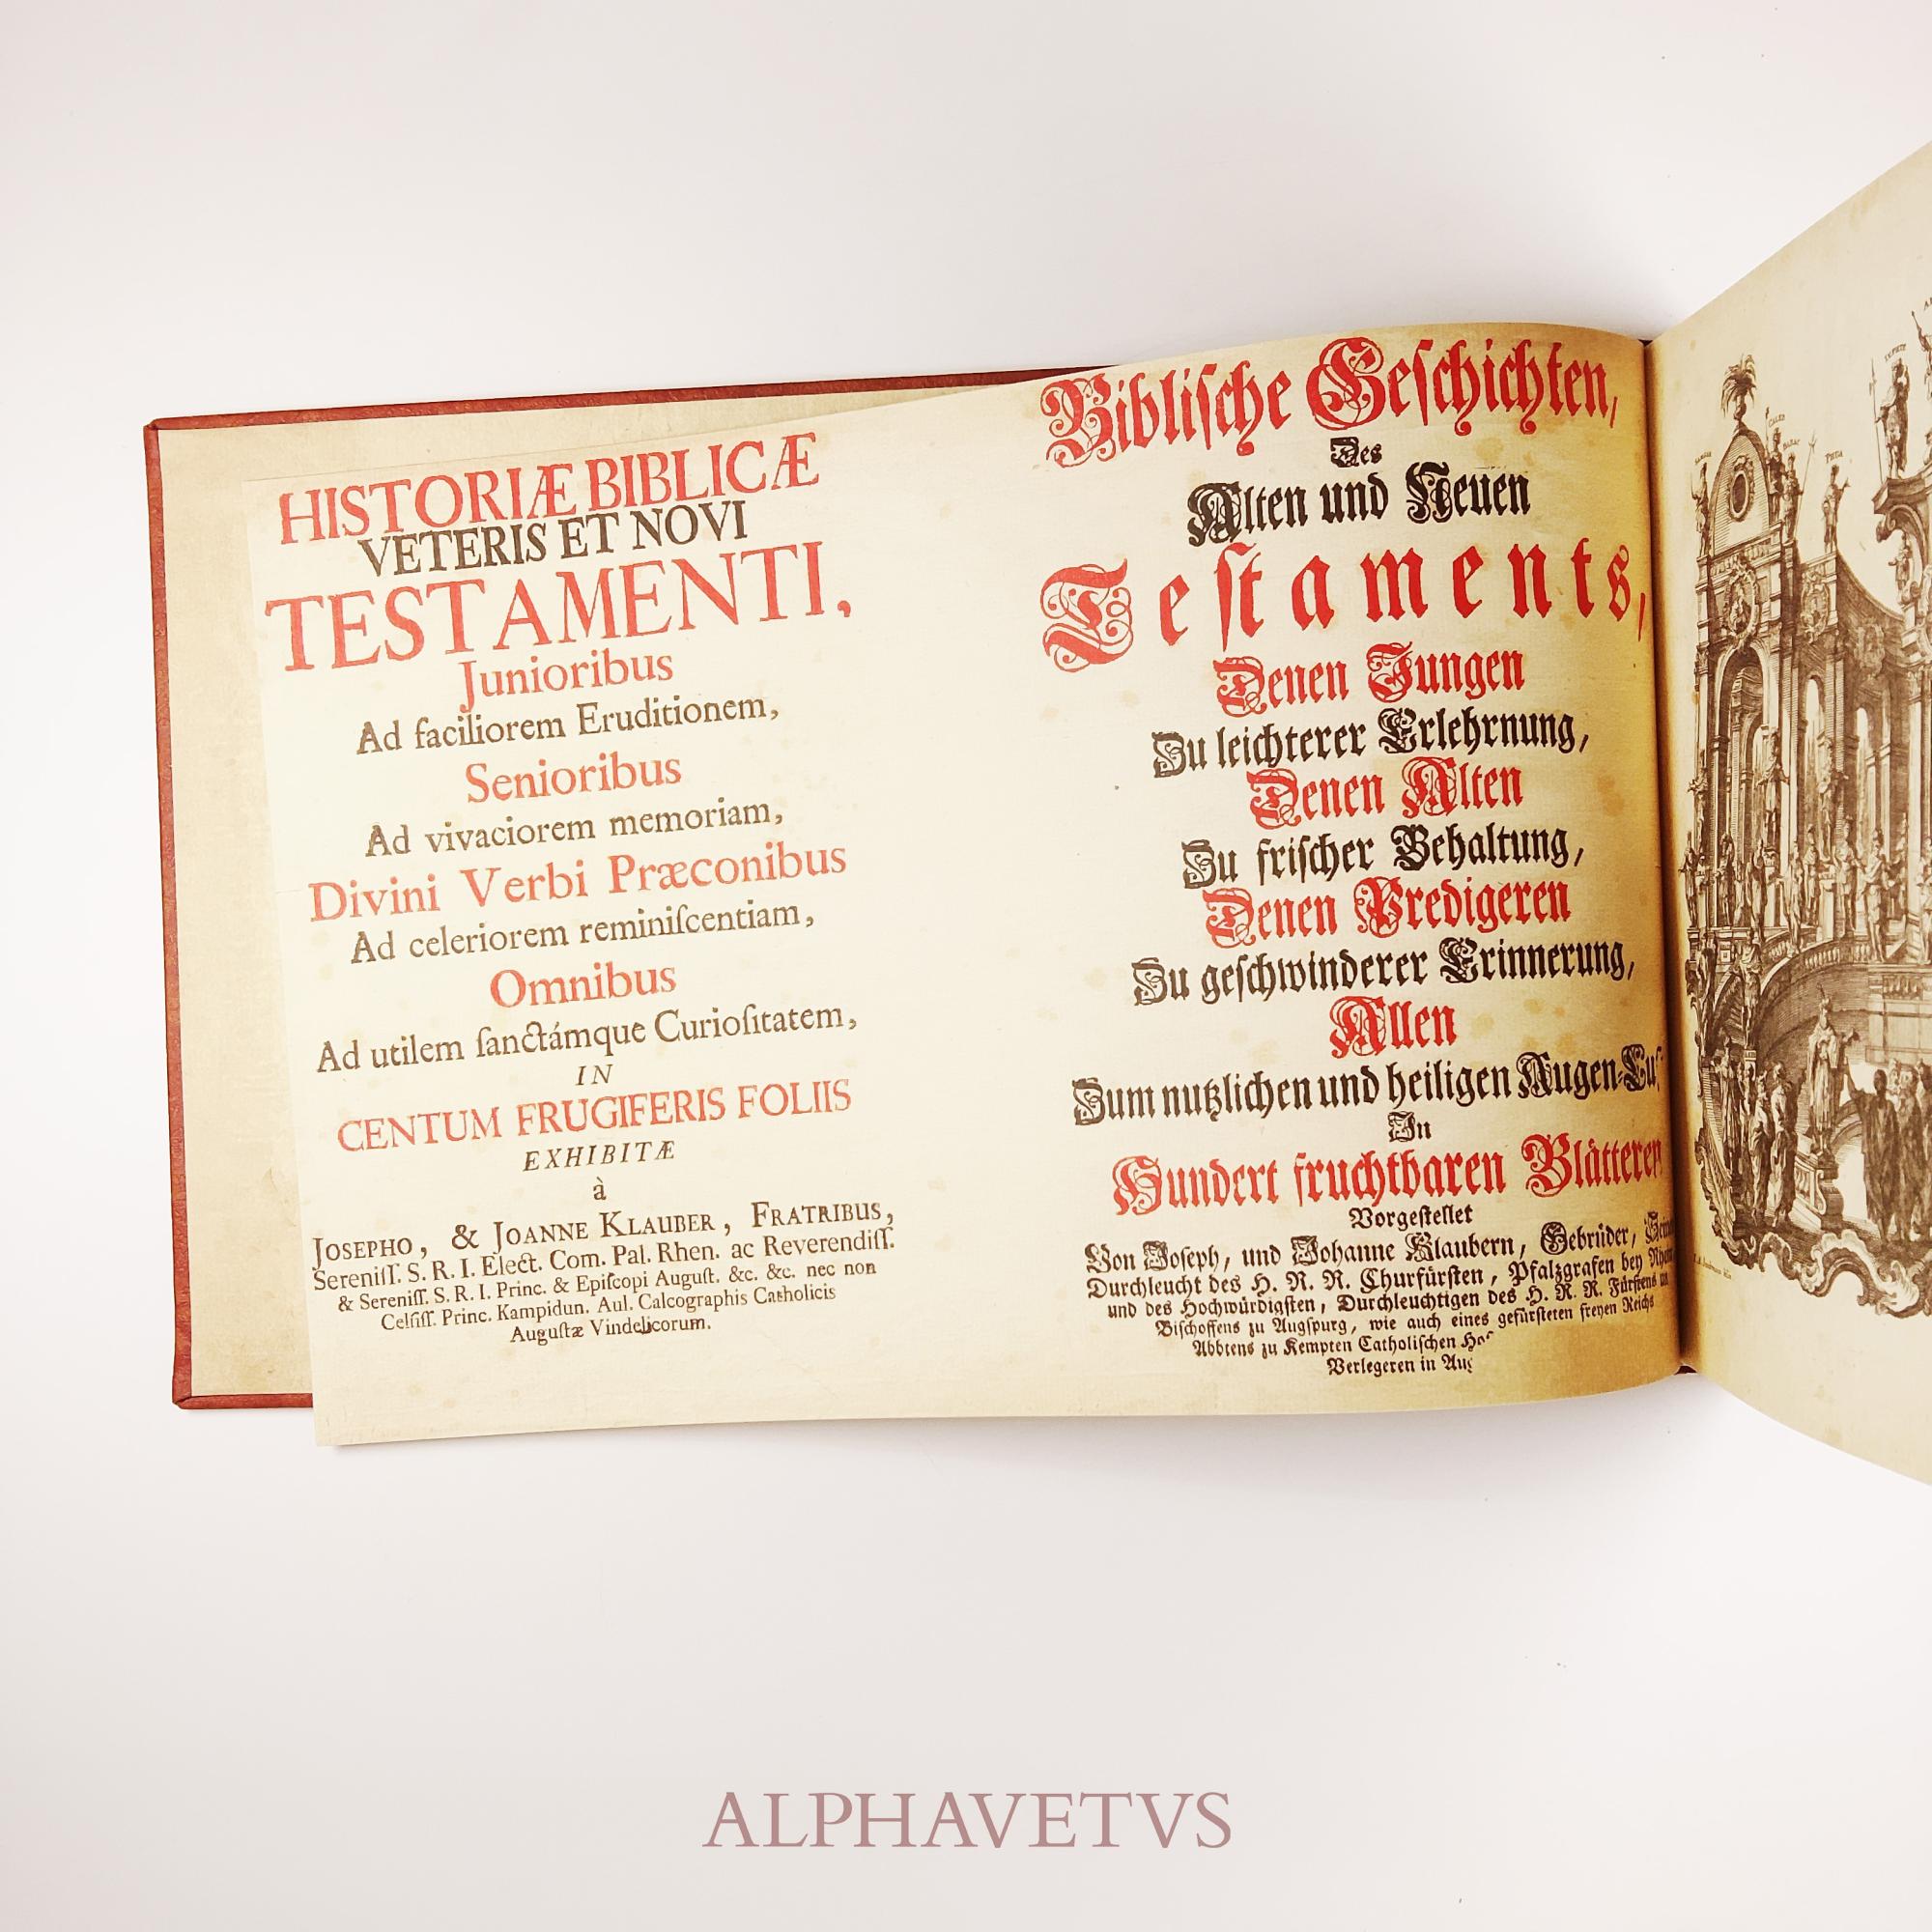 HISTORIÆ BIBLICÆ
VETERIS ET NOVI
TESTAMENTI,
Junioribus
Ad faciliorem Eruditionem,
Senioribus
Ad vivaciorem memoriam,
Divini Verbi Præconibus
Ad celeriorem reminiſcentiam,
Omnibus
Ad utilem ſanctámque Curioſitatem,
IN
CENTUM FRUGIFERIS FOLIIS
EXHIBITÆ
à
JOSEPHO, & JOANNE KLAUBER, FRATRIBUS,
Sereniſſ. S. R. I. Elect. Com. Pal. Rhen. ac Reverendiſſ.
& Sereniſſ. S. R. I. Princ. & Epiſcopi Auguſt. &c. &c. nec non
Celſiſſ. Princ. Kampidun. Aul. Calcographis Catholicis
Auguſtæ Vindelicorum.
Bibliſche Geſchichten,
Des
Alten und Neuen
Teſtaments,
Denen Jungen
Zu leichterer Erlehrnung,
Denen Alten
Zu friſcher Behaltung,
Denen Predigeren
Zu geſchwinderer Erinnerung,
Allen
Zum nutzlichen und heiligen Augen-Lu
In
Hundert fruchtbaren Blätteren
Vorgeſtellet
Von Joſeph, und Johanne Klaubern, Gebrüder,
Durchleucht des H. R. R. Churfürſten, Pfalzgrafen bey Rhein
und des Hochwürdigſten, Durchleuchtigen des H. R. R. Fürſtens
Biſchoffens zu Augſpurg, wie auch eines gefürſteten freyen Reichs
Abbtens zu Kempten Catholiſchen
Verlegeren in Aug
ALPHAVETVS